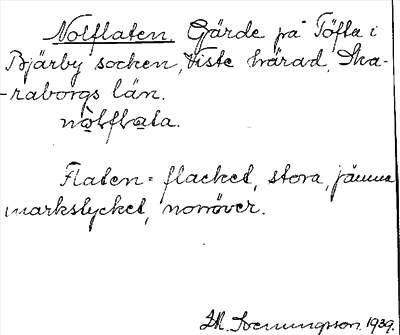 Nolflaten. Gärde på Töfta i
Bjärby socken, Viste härad, Ska-
-raborgs län.
nòlflata.
Flaten = flacket, stora, jämna
markstycket, norröver.
Svenningsson. 1939.